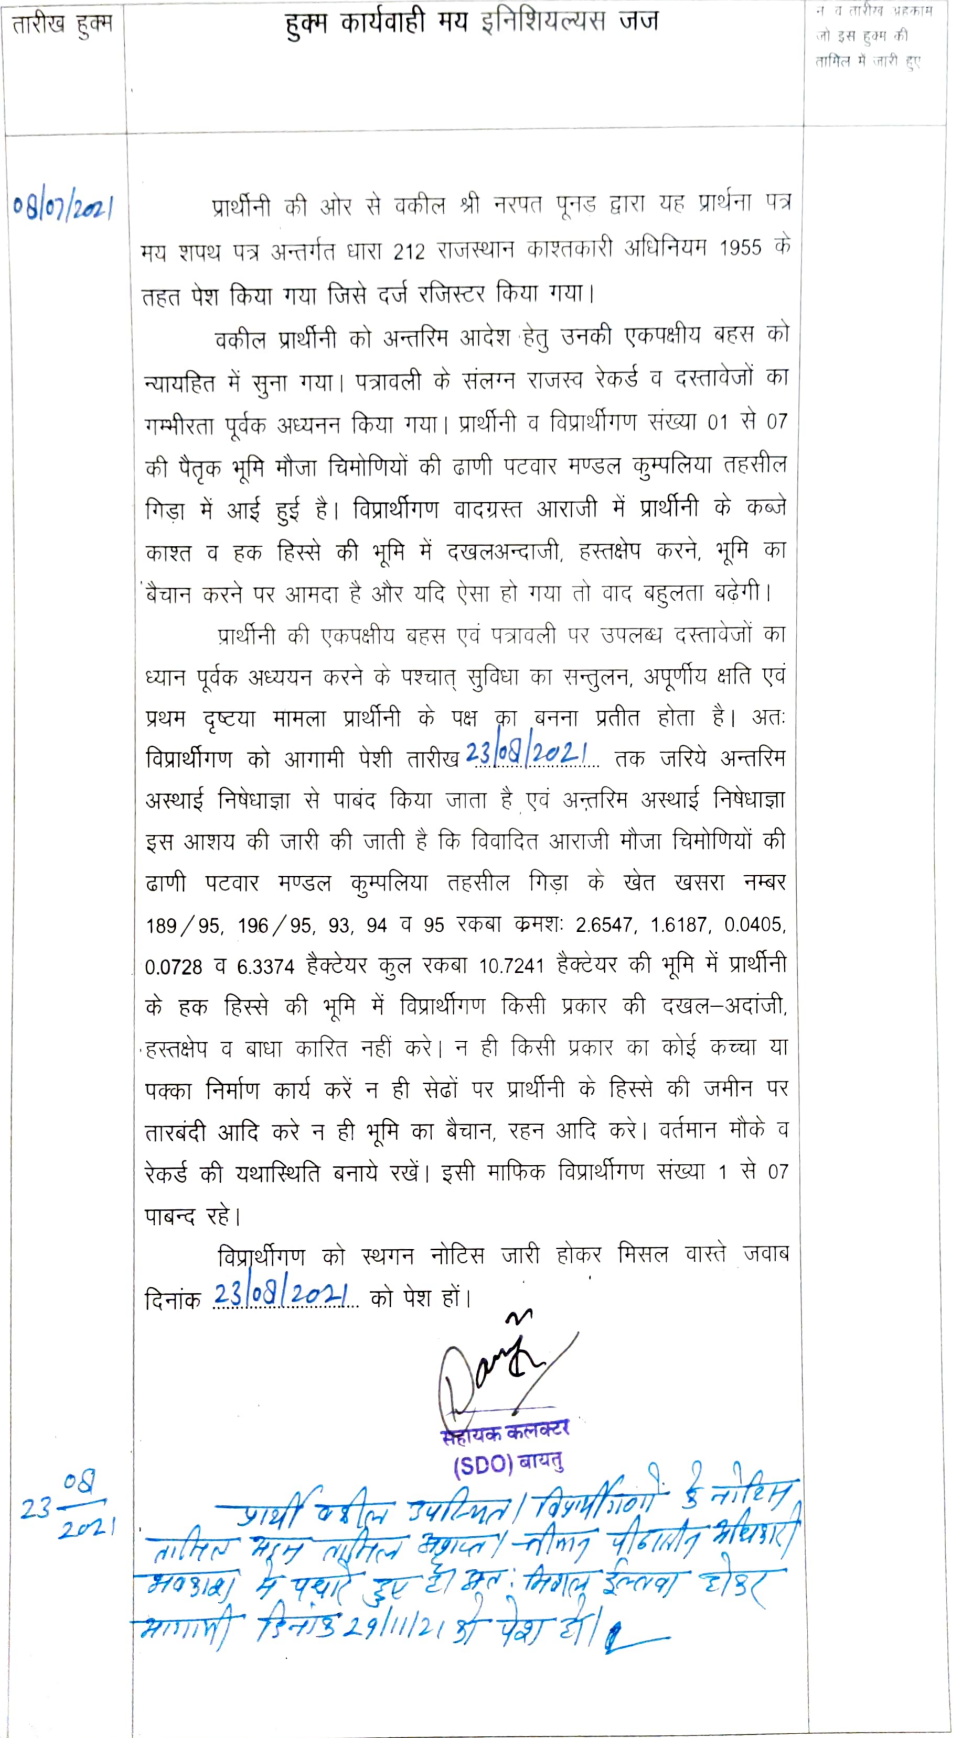 तारीख हुक्म
हुक्म कार्यवाही मय इनिशियल्यस जज
न व तारीख अहकाम
जो इस हुक्म की
तामिल में जारी हुए
08/07/2021
प्रार्थीनी की ओर से वकील श्री नरपत पूनड द्वारा यह प्रार्थना पत्र
मय शपथ पत्र अन्तर्गत धारा 212 राजस्थान काश्तकारी अधिनियम 1955 के
तहत पेश किया गया जिसे दर्ज रजिस्टर किया गया।
वकील प्रार्थीनी को अन्तरिम आदेश हेतु उनकी एकपक्षीय बहस को
न्यायहित में सुना गया। पत्रावली के संलग्न राजस्व रेकर्ड व दस्तावेजों का
गम्भीरता पूर्वक अध्यनन किया गया। प्रार्थीनी व विप्रार्थीगण संख्या 01 से 07
की पैतृक भूमि मौजा चिमोणियों की ढाणी पटवार मण्डल कुम्पलिया तहसील
गिड़ा में आई हुई है। विप्रार्थीगण वादग्रस्त आराजी में प्रार्थीनी के कब्जे
काश्त व हक हिस्से की भूमि में दखलअन्दाजी, हस्तक्षेप करने, भूमि का
बैचान करने पर आमदा है और यदि ऐसा हो गया तो वाद बहुलता बढ़ेगी।
प्रार्थीनी की एकपक्षीय बहस एवं पत्रावली पर उपलब्ध दस्तावेजों का
ध्यान पूर्वक अध्ययन करने के पश्चात् सुविधा का सन्तुलन, अपूर्णीय क्षति एवं
प्रथम दृष्टया मामला प्रार्थीनी के पक्ष का बनना प्रतीत होता है। अतः
विप्रार्थीगण को आगामी पेशी तारीख 23/08/2021 तक जरिये अन्तरिम
अस्थाई निषेधाज्ञा से पाबंद किया जाता है एवं अन्तरिम अस्थाई निषेधाज्ञा
इस आशय की जारी की जाती है कि विवादित आराजी मौजा चिमोणियों की
ढाणी पटवार मण्डल कुम्पलिया तहसील गिड़ा के खेत खसरा नम्बर
189/95, 196/95, 93, 94 व 95 रकबा क्रमशः 2.6547, 1.6187, 0.0405,
0.0728 व 6.3374 हैक्टेयर कुल रकबा 10.7241 हैक्टेयर की भूमि में प्रार्थीनी
के हक हिस्से की भूमि में विप्रार्थीगण किसी प्रकार की दखल–अदांजी,
हस्तक्षेप व बाधा कारित नहीं करे। न ही किसी प्रकार का कोई कच्चा या
पक्का निर्माण कार्य करें न ही सेढों पर प्रार्थीनी के हिस्से की जमीन पर
तारबंदी आदि करे न ही भूमि का बैचान, रहन आदि करे। वर्तमान मौके व
रेकर्ड की यथास्थिति बनाये रखें। इसी माफिक विप्रार्थीगण संख्या 1 से 07
पाबन्द रहे।
विप्रार्थीगण को स्थगन नोटिस जारी होकर मिसल वास्ते जवाब
दिनांक 23/08/2021 को पेश हों।
सहायक कलक्टर
(SDO) बायतु
23 08/2021
प्रार्थी वकील उपस्थित। विप्रार्थीगणों के नोटिस
तामिल अदम तामिल अप्राप्त। श्रीमान पीठासीन अधिकारी
अवकाश में पधारे हुए है। अतः मिसल ईल्तवा होकर
आगामी दिनांक 29/11/21 को पेश हो।